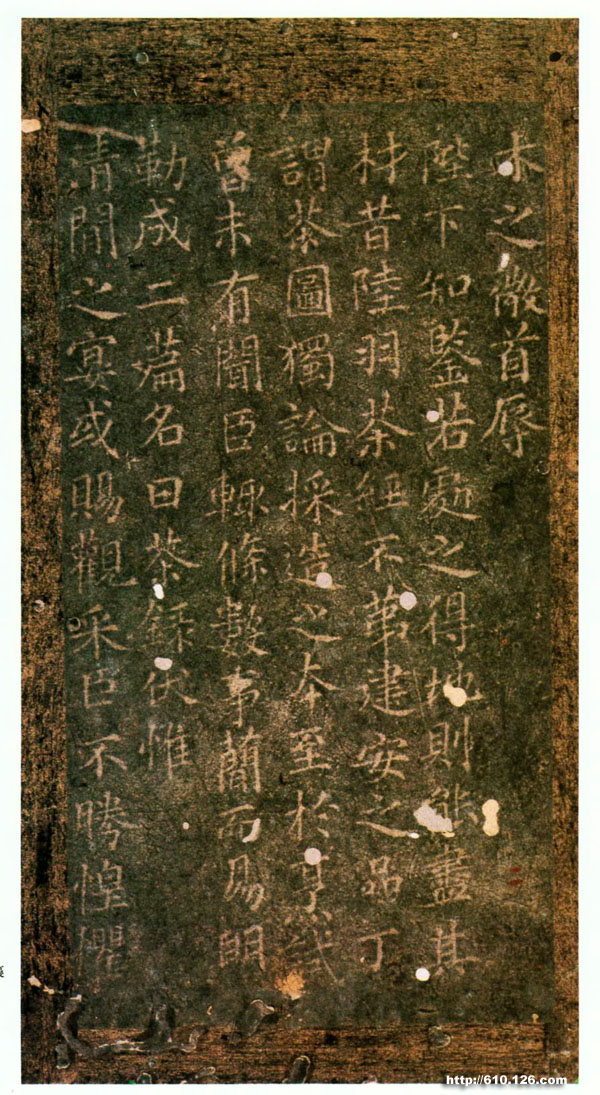 木之微首辱
陛下知鑒若處之得地則能盡其
材昔陸羽茶經不第建安之品丁
謂茶圖獨論採造之本至於烹試
曾未有聞臣輒條數事簡而易明
勒成二篇名曰茶録伏惟
清閒之宴或賜觀采臣不勝惶懼
http://610.126.com